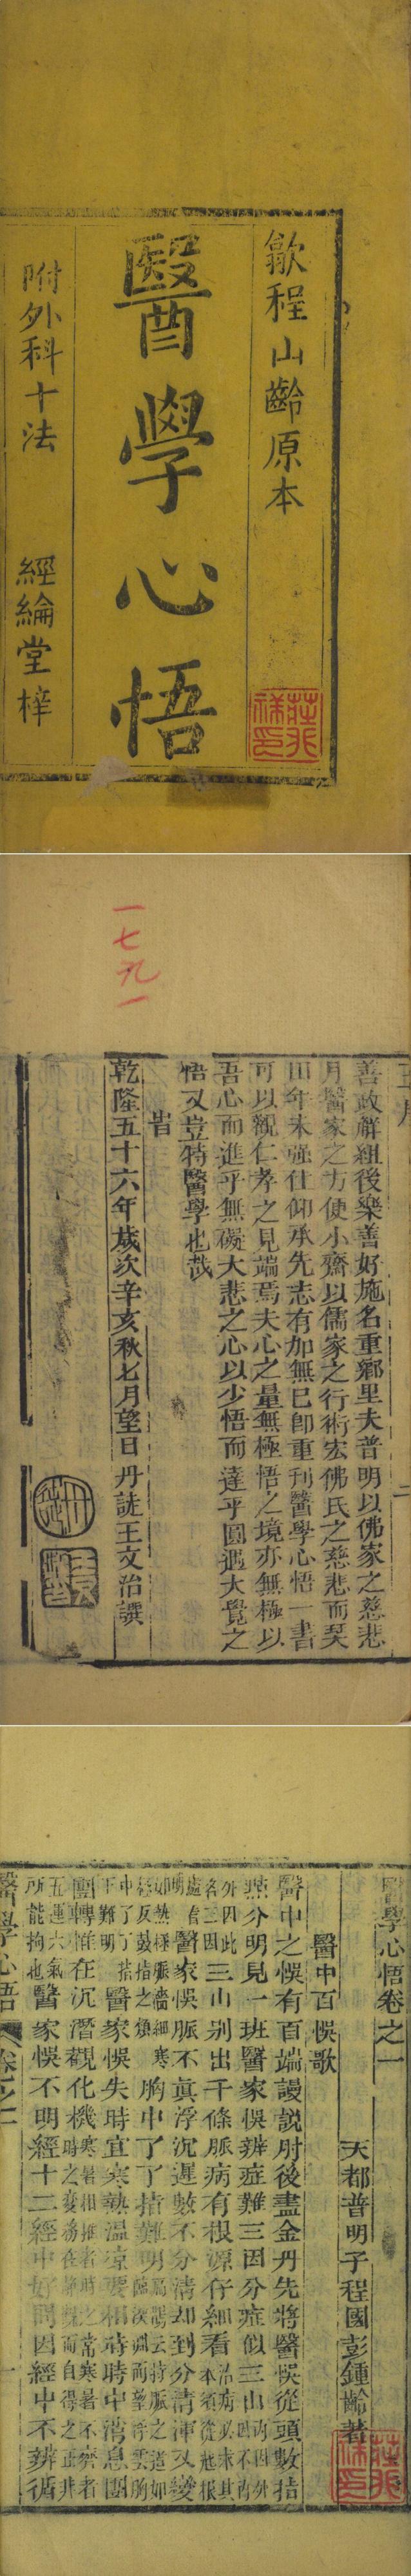 歙程山齡原本
醫學心悟
附外科十法　經綸堂梓
一七九一
善政解組後樂善好施名重鄉里夫普明以佛家之慈悲
月醫家之方便小齋以儒家之行術宏佛氏之慈悲而琹
田年未強仕仰承先志有加無已卽重刊醫學心悟一書
可以觀仁孝之見端焉夫心之量無極悟之境亦無極以
吾心而進乎無礙大悲之心以少悟而達乎圓遇大覺之
悟又豈特醫學也哉
旹
乾隆五十六年歲次辛亥秋七月望日丹徒王文治譔
醫學心悟卷之一
天都普明子程國彭鍾齡著
醫中百悞歌
醫中之悞有百端謾説肘後盡金丹先將醫悞從頭數指
點分明見一班醫家悞辨症難三因分症似三山內因外因不內
外因此名三因三山別出千條脈病有根源仔細看治病必求其本須從起根
處看明醫家悞脈不眞浮沉遲數不分清却到分清渾又變
胸中了了指難明
醫家悞失時宜寒熱溫涼要相時時中消息團
團轉惟在沉潛觀化機寒暑相推者時之常寒暑不齊者
時之變務在靜觀而自得之正非
五運六氣所能拘也醫家悞不明經十二經中好問因經中不辨循
醫學心悟　卷之一　一